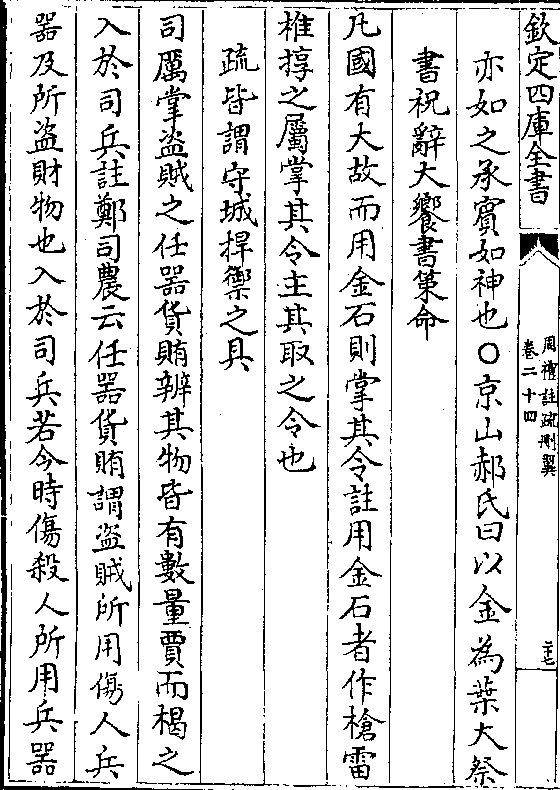 欽定四庫全書
周禮註疏刪翼
卷二十四
二十七
亦如之承賓如神也○京山郝氏曰以金為葉大祭
書祝辭大饗書策命
凡國有大故而用金石則掌其令註用金石者作槍雷
椎㨃之屬掌其令主其取之令也
疏皆謂守城捍禦之具
司厲掌盜賊之任器貨賄辨其物皆有數量賈而楬之
入於司兵註鄭司農云任器貨賄謂盜賊所用傷人兵
器及所盜財物也入於司兵若今時傷殺人所用兵器